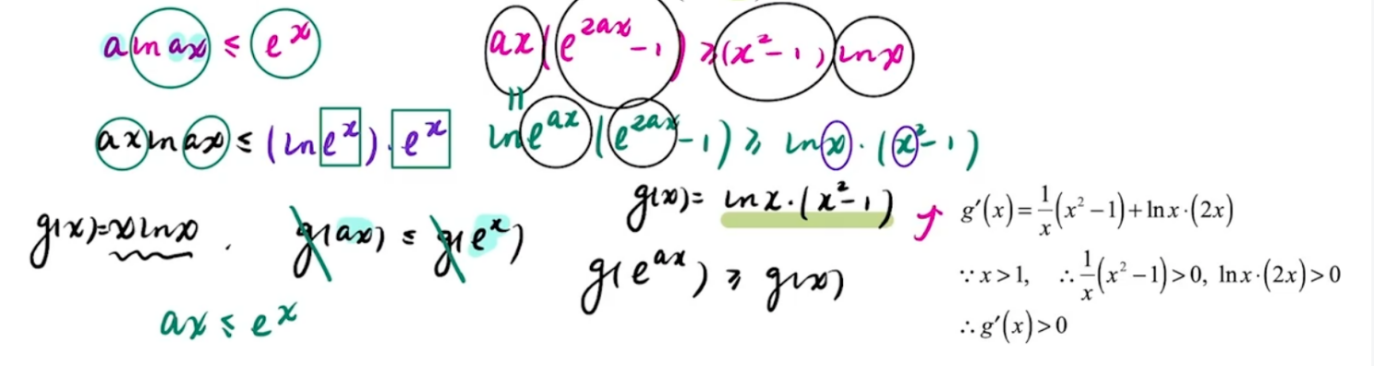 a ln ax ≤ e^x
ax ln ax ≤ (ln e^x) · e^x
g(x)=x ln x . g(ax) ≤ g(e^x)
ax ≤ e^x
ax(e^{2ax} -1) ≥ (x²-1) ln x
=
ln e^{ax} (e^{2ax}-1) ≥ ln x · (x²-1)
g(x)= ln x·(x²-1) ↑
g(e^{ax}) ≥ g(x)
g′(x)=1/x(x²−1)+ln x·(2x)
∵x>1, ∴1/x(x²−1)>0, ln x·(2x)>0
∴g′(x)>0